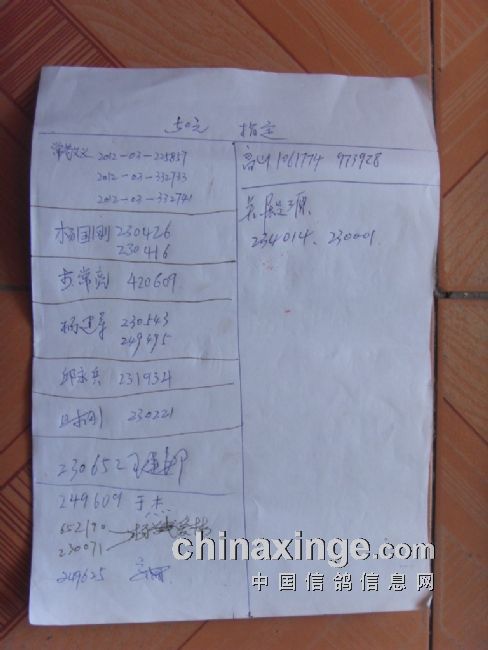 50元 指定
2012-03-225857
2012-03-332733
2012-03-332741
杨国刚 230426
230416
苏常高 420609
杨建军 230543
249495
邱永兵 231934
230221
230652
249609 于杰
652190
230071
249625
高山 1061774 973928
234014、230001
chinaxinge.com
中国信鸽信息网